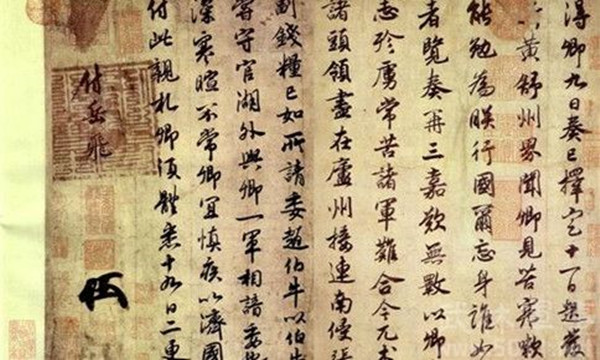 得卿九日奏已擇定十一日起發
黃舒州界聞卿見苦寒嗽
能勉為朕行國爾忘身誰如
者覽奏再三嘉歎無斁以卿
志殄虜常苦諸軍難合今兀朮
諸頭領盡在廬州接連南侵張
副錢糧已如所請委趙伯牛以伯牛
嘗守官湖外與卿一軍相諳委
深寒暄不常卿宜慎疾以濟國
付此親札卿須體悉十九日二更
付岳飛